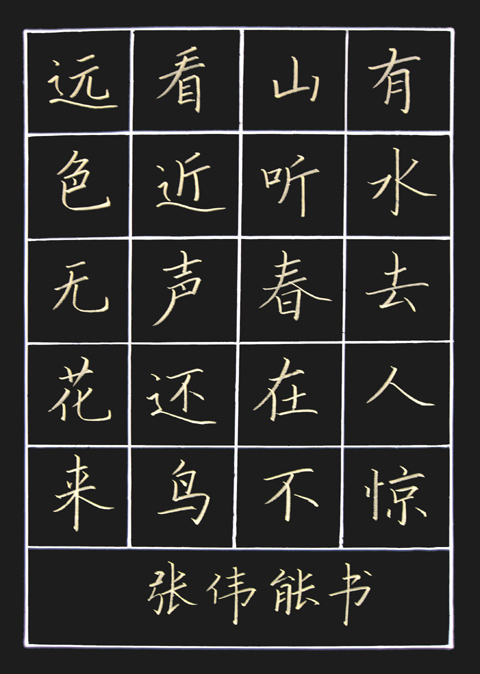 远看山有
色近听水
无声春去
花还在人
来鸟不惊
张伟能书